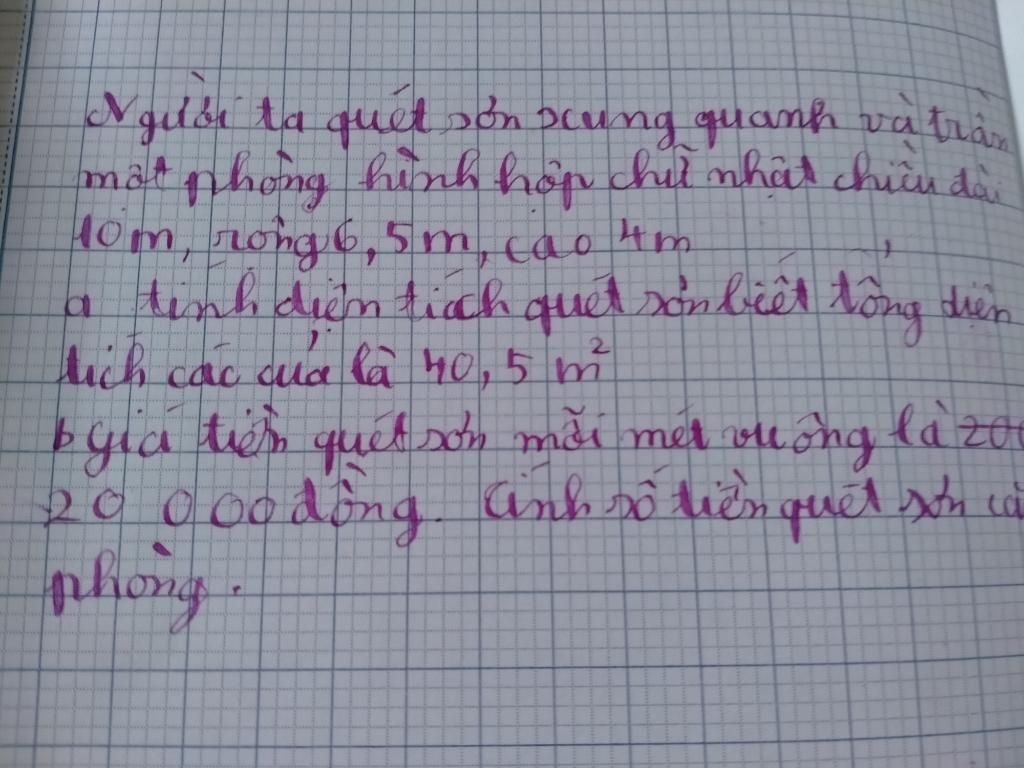 Người ta quét sơn xung quanh và trần
một phòng hình hộp chữ nhật chiều dài
10m, rộng 6,5m, cao 4m
a tính diện tích quét sơn biết tổng diện
tích các cửa là 40,5 m²
b giá tiền quét sơn mỗi mét vuông là
20 000 đồng. Tính số tiền quét sơn cả
phòng.